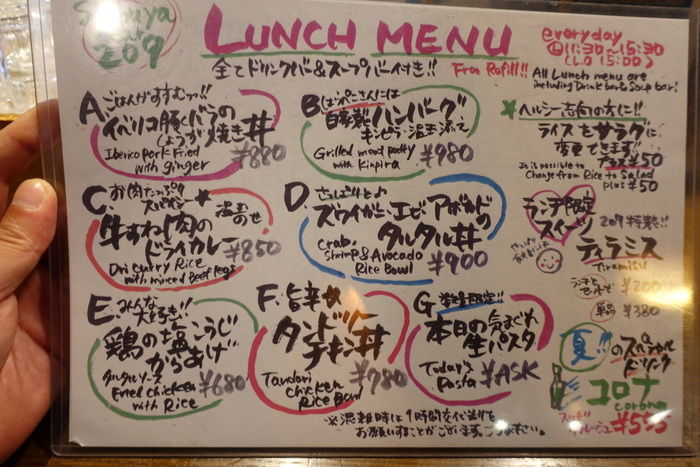 Shibuya
209
LUNCH MENU
全てドリンクバー&スープバー付き!!
Free Refill!!
everyday
11:30~15:30
(L.O 15:00)
All Lunch menu are
including Drink bar & Soup bar!
A. ごはんがすすむッ!!
イベリコ豚とバラの
しょうが焼き丼
Iberico Pork Fried
with ginger
¥880
B.
自家製ハンバーグ
Grilled meat patty
with Kinpira
¥980
ヘルシー志向の方に!!
ライスをサラダに
変更できます!!
プラス¥50
It is possible to
Change from Rice to Salad
plus ¥50
C. お肉たっぷり
スパイシー
温玉のせ
牛すね肉の
ドライカレー
Dri Curry Rice
with minced Beef legs
¥850
D. さっぱりとッ
ズワイガニエビアボカドの
タルタル丼
Crab,
Shrimp & Avocado
Rice Bowl
¥900
ランチ限定
スイーツ
209特製!!
ティラミス
Tiramisu
ランチと
セットで
¥200
単品
¥380
E. みんな
大好き!!
鶏の塩こうじ
からあげ
タルタルソース
Fried chicken
with Rice
¥680
F. 旨辛
タンドリー
チキン丼
Tandori
chicken
Rice Bowl
¥780
G. 数量限定!!
本日の気まぐれ
生パスタ
Today's
Pasta
¥ASK
夏!!のスペシャル
ドリンク
コロナ
corona
¥555
※混雑時は1時間交代制を
お願いすることがございます。ご了承下さい。